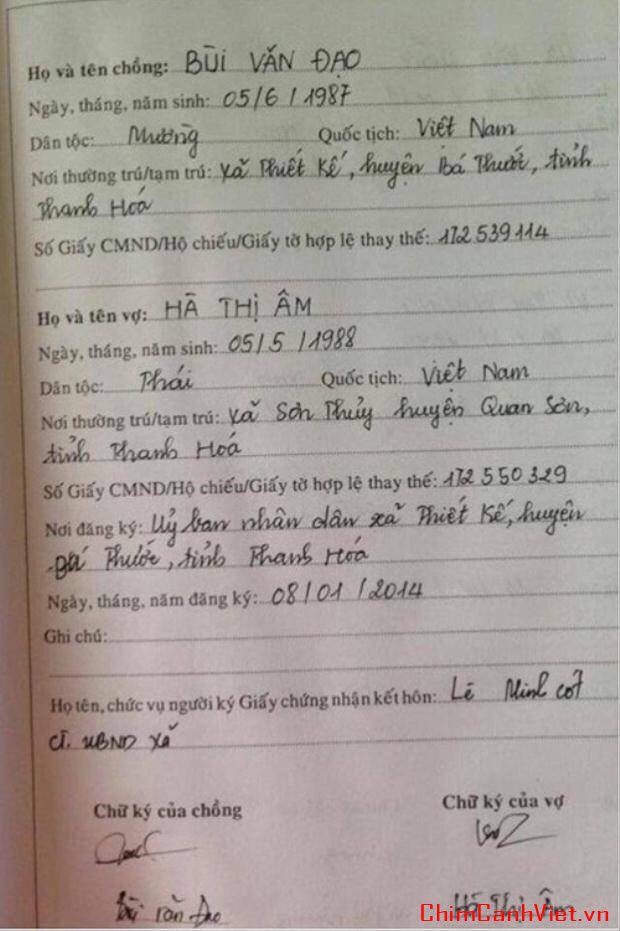 Họ và tên chồng: BÙI VĂN ĐẠO
Ngày, tháng, năm sinh: 05/6/1987
Dân tộc: Mường Quốc tịch: Việt Nam
Nơi thường trú/tạm trú: xã Thiết Kế, huyện Bá Thước, tỉnh
Thanh Hoá
Số Giấy CMND/Hộ chiếu/Giấy tờ hợp lệ thay thế: 172 539 114
Họ và tên vợ: HÀ THỊ ÂM
Ngày, tháng, năm sinh: 05/5/1988
Dân tộc: Thái Quốc tịch: Việt Nam
Nơi thường trú/tạm trú: xã Sơn Thủy huyện Quan Sơn,
tỉnh Thanh Hoá
Số Giấy CMND/Hộ chiếu/Giấy tờ hợp lệ thay thế: 172 550 329
Nơi đăng ký: Uỷ ban nhân dân xã Thiết Kế, huyện
Bá Thước, tỉnh Thanh Hóa
Ngày, tháng, năm đăng ký: 08/01/2014
Ghi chú:
Họ tên, chức vụ người ký Giấy chứng nhận kết hôn: Lê Minh
CT. UBND xã
Chữ ký của chồng Chữ ký của vợ
Bùi Văn Đạo Hà Thị Âm
ChimCanhViet.vn